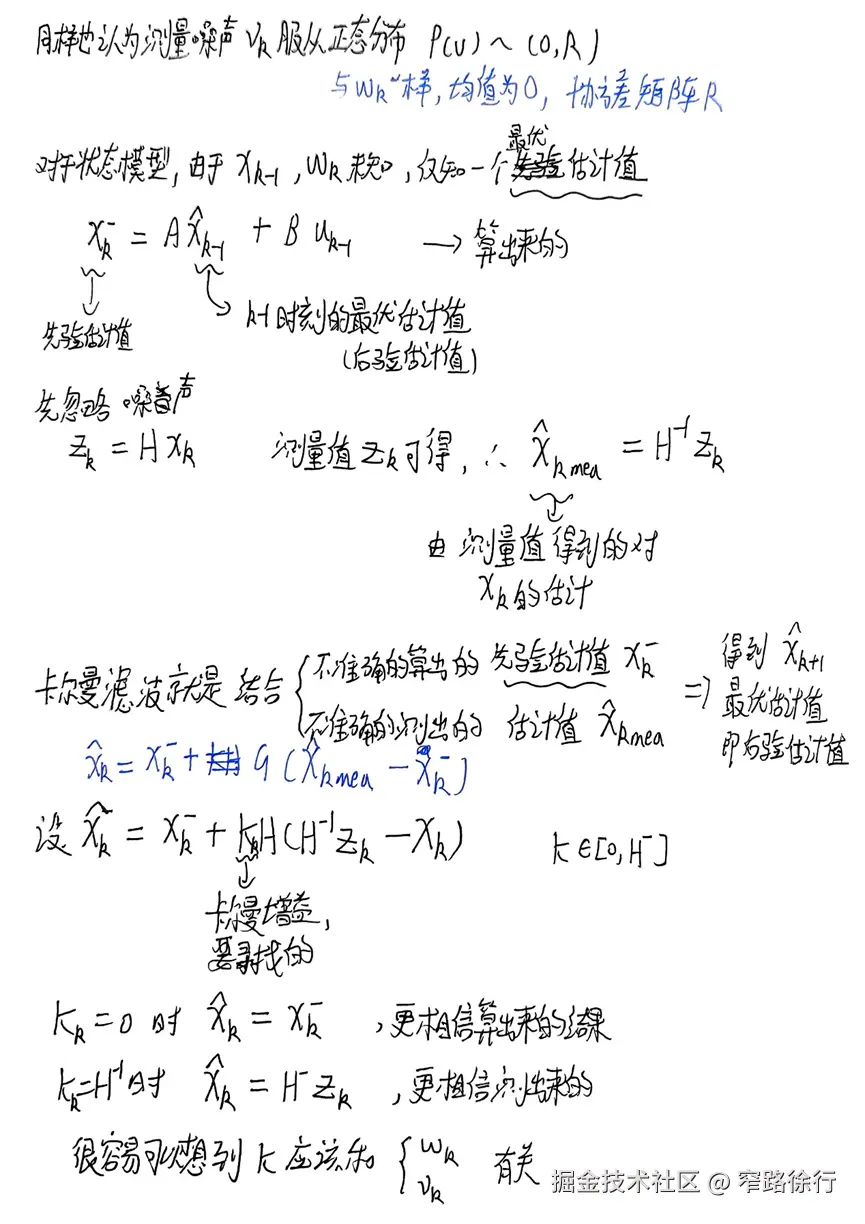 同样也认为测量噪声 νₖ 服从正态分布 P(ν) ~ (0,R)
与 wₖ 一样, 均值为0, 协方差矩阵R
对于状态模型, 由于 xₖ₋₁, wₖ 未知, 仅知一个最优估计值
xₖ⁻ = A x̂ₖ₋₁ + B uₖ₋₁ → 算出来的
先验估计值
k-1时刻的最优估计值
(后验估计值)
先忽略噪声
zₖ = H xₖ 测量值 zₖ 可得, ∴ x̂ₖmea = H⁻¹ zₖ
由测量值得到的对
xₖ 的估计
卡尔曼滤波就是结合 { 不准确的算出的 先验估计值 xₖ⁻
不准确的测出的 估计值 x̂ₖmea
⇒ 得到 x̂ₖ₊₁
最优估计值
即后验估计值
x̂ₖ = xₖ⁻ + G (x̂ₖmea − x̂ₖ⁻)
设 x̂ₖ = xₖ⁻ + KₖH(H⁻¹zₖ − xₖ) K∈[0,H⁻]
卡尔曼增益,
要寻找的
Kₖ=0 时 x̂ₖ = xₖ⁻ , 更相信算出来的结果
Kₖ=H⁻¹时 x̂ₖ = H⁻zₖ , 更相信测出来的
很容易可以想到 K 应该和 { wₖ 有关
νₖ
掘金技术社区 @ 窄路徐行